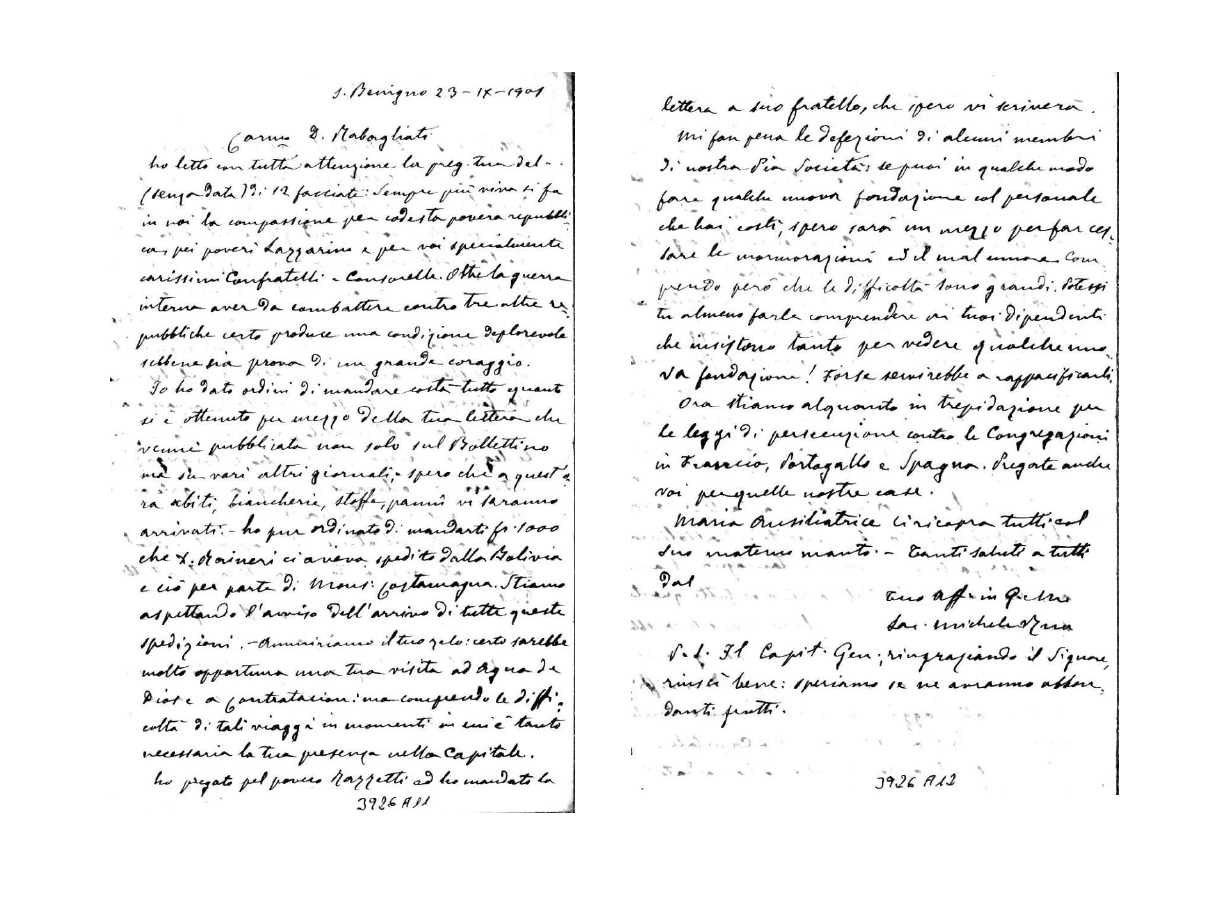 S. Benigno 23-IX-1901
Carmo D. Rabagliati
ho letto con tutta attenzione la preg. tua del -..
(senza data) di 12 facciate: Sempre più viva si fa
in noi la compassione per codesta povera repubbli-
ca, pei poveri Lazzarini e per voi specialmente
carissimi Confratelli - Consorelle. Oltre la guerra
interna aver da combattere contro tre altre re-
pubbliche certo produce una condizione deplorevole
sebbene sia prova di un grande coraggio.
Io ho dato ordini di mandare costà tutto quanto
si è ottenuto per mezzo della tua lettera che
venne pubblicata non solo sul Bollettino
ma su vari altri giornali, - spero che a quest'o-
ra abiti, biancherie, stoffe, panni vi saranno
arrivati. - ho pur ordinato di mandarti fr. 1000
che D. Raineri ci aveva spedito dalla Bolivia
e ciò per parte di Mons: Costamagna. Stiamo
aspettando l'avviso dell'arrivo di tutte queste
spedizioni. - Ammiriamo il tuo zelo: certo sarebbe
molto opportuna una tua visita ad Agua de
Dios e a Contratacion: ma comprendo le diffi-
coltà di tali viaggi in momenti in cui è tanto
necessaria la tua presenza nella Capitale.
ho pregato pel povero Razzetti ed ho mandato la
3926 A11
lettera a suo fratello, che spero vi scriverà.
Mi fan pena le defezioni di alcuni membri
di nostra Pia Società: se puoi in qualche modo
fare qualche nuova fondazione col personale
che hai costì, spero sarà un mezzo per far ces-
sare le mormorazioni ed il mal umore. Com-
prendo però che le difficoltà sono grandi. Potessi
tu almeno farle comprendere ai tuoi dipendenti
che insistono tanto per vedere qualche nuo-
va fondazione! Forse servirebbe a rappacificarli.
Ora stiamo alquanto in trepidazione per
le leggi di persecuzione contro le Congregazioni
in Francia, Portogallo e Spagna. Pregate anche
voi per quelle nostre case.
Maria Ausiliatrice ci ricopra tutti col
suo materno manto. - Tanti saluti a tutti
dal
tuo Aff. in G. e M.
Sac. Michele Rua
P.S. Il Capit. Gen., ringraziando il Signore,
riuscì bene: speriamo se ne avranno abbon-
danti frutti.
3926 A12